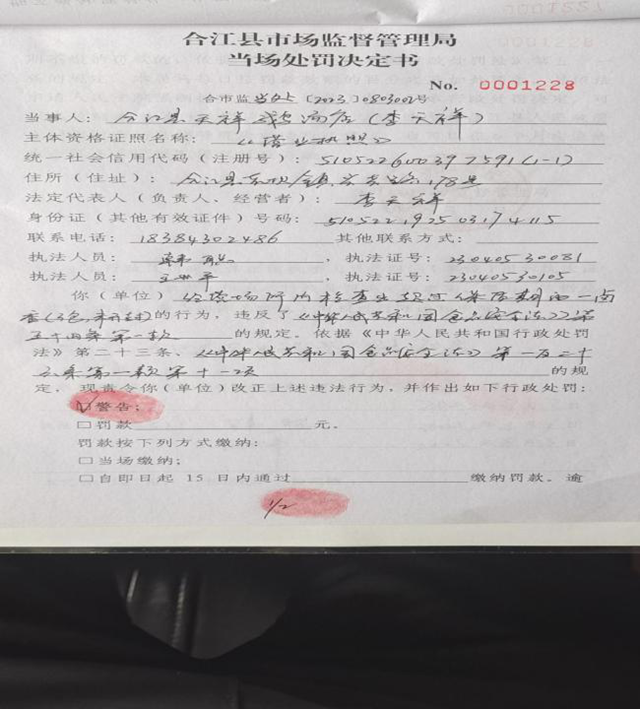 合江县市场监督管理局
当场处罚决定书
No. 0001228
合市监当处〔2023〕0803002号
当事人：合江县天祥 店（李天祥）
主体资格证照名称：《营业执照》
统一社会信用代码（注册号）：
住所（住址）：合江县 镇 178号
法定代表人（负责人、经营者）：李天祥
身份证（其他有效证件）号码：
联系电话：18384302486 其他联系方式：
执法人员： ，执法证号：23040530081
执法人员：王 平 ，执法证号：23040530105
你（单位）经营场所内检查出超过保质期的一
的行为，违反了《中华人民共和国食品安全法》第
五十四条第一款 的规定。依据《中华人民共和国行政处罚
法》第二十三条、《中华人民共和国食品安全法》第一百二十
六条第一款第十一项 的规
定，现责令你（单位）改正上述违法行为，并作出如下行政处罚：
☑警告；
□罚款 元。
罚款按下列方式缴纳：
□当场缴纳；
□自即日起 15 日内通过 缴纳罚款。逾
1/2